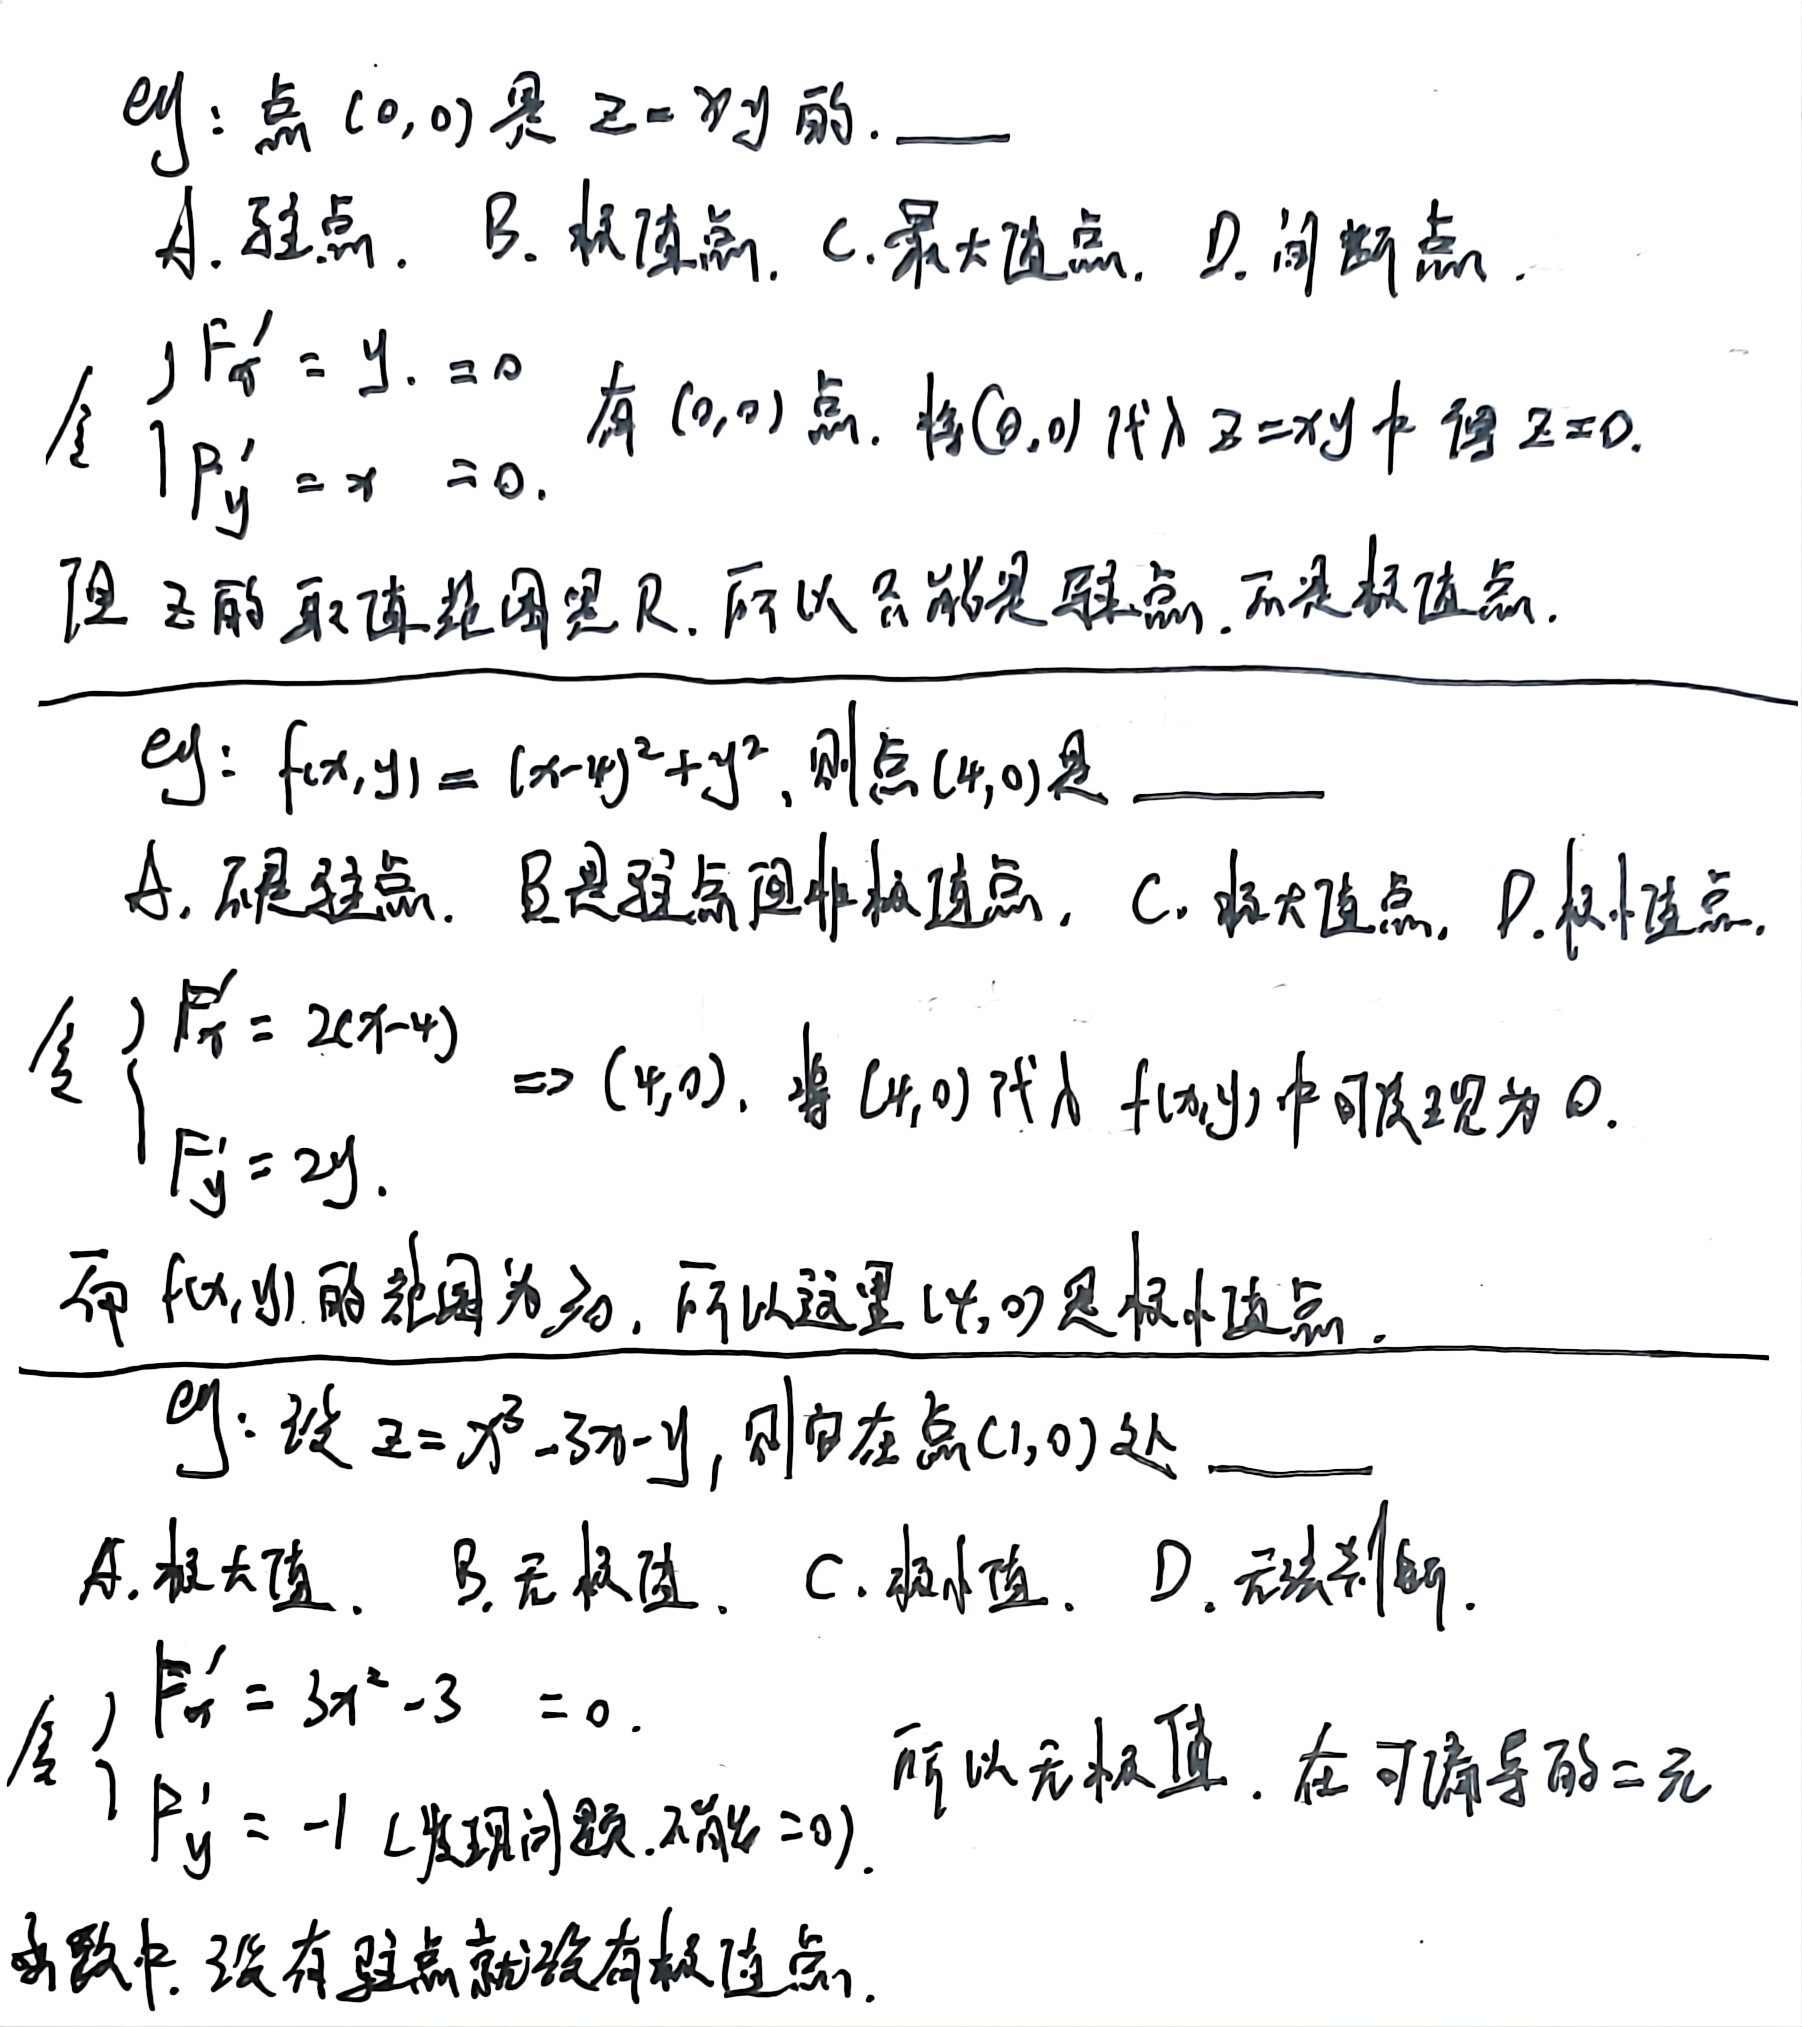 eg: 点 (0,0) 是 z=xy 的.____
A. 驻点. B. 极值点. C. 最大值点. D. 间断点.
令 { Fx' = y. =0
Fy' = x =0. 有 (0,0) 点. 将(0,0) 代入 z=xy 中 得 z=0.
但 z 的 取值范围是R. 所以 只能是 驻点. 不是极值点.
eg: f(x,y) = (x-4)²+y², 则点(4,0)是 ____
A. 不是驻点. B是驻点但非极值点. C. 极大值点. D. 极小值点.
令 { Fx' = 2(x-4)
Fy' = 2y. => (4,0). 将 (4,0) 代入 f(x,y) 中可发现为 0.
而 f(x,y) 的范围为≥0, 所以这里 (4,0) 是极小值点.
eg: 设 z= x³-3x-y, 则它在点(1,0) 处 ____
A. 极大值. B. 无极值. C. 极小值. D. 无法判断.
令 { Fx' = 3x²-3 =0.
Fy' = -1 (发现问题.不能=0). 所以无极值. 在可偏导的二元
函数中. 没有驻点就没有极值点.